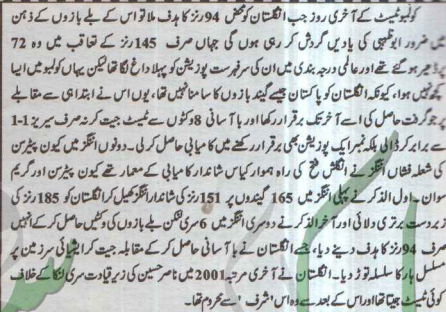 کولمبو ٹیسٹ کے آخری روز جب انگلستان کو محض 94 رنز کا ہدف ملا تو اس کے بلے بازوں کے ذہن
میں ضرور ابوظہبی کی یادیں گردش کر رہی ہوں گی جہاں صرف 145 رنز کے تعاقب میں وہ 72
پر ڈھیر ہو گئے تھے اور عالمی درجہ بندی میں ان کی سرفہرست پوزیشن کو پہلا داغ لگا تھا لیکن یہاں کولمبو میں ایسا
کچھ نہیں ہوا، کیونکہ انگلستان کو پاکستان جیسے گیند بازوں کا سامنا نہیں تھا، یوں اس نے ابتدا ہی سے مقابلے
پر جو گرفت حاصل کی اسے آخر تک برقرار رکھا اور با آسانی 8 وکٹوں سے ٹیسٹ جیت کر نہ صرف سیریز 1-1
سے برابر کر ڈالی بلکہ نمبر ایک پوزیشن بھی برقرار رکھنے میں کامیابی حاصل کر لی۔ دونوں انگز میں کیون پیٹرسن
کی شعلہ فشاں انگز نے انگلش فتح کی راہ ہموار کی اس شاندار کامیابی کے معمار تھے کیون پیٹرسن اور گریم
سوان۔ اول الذکر نے پہلی انگز میں 165 گیندوں پر 151 رنز کی شاندار انگز کھیل کر انگلستان کو 185 رنز کی
زبردست برتری دلائی اور آخر الذکر نے دوسری انگز میں 6 سری لنکن بلے بازوں کی وکٹیں حاصل کر کے انہیں
صرف 94 رنز کا ہدف دینے دیا، جسے انگلستان نے با آسانی حاصل کر کے مقابلہ جیت کر ایشیائی سرزمین پر
مسلسل ہار کا سلسلہ توڑ دیا۔ انگلستان نے آخری مرتبہ 2001 میں ناصر حسین کی زیر قیادت سری لنکا کے خلاف
کوئی ٹیسٹ جیتا تھا اور اس کے بعد سے وہ اس 'شرف' سے محروم تھا۔